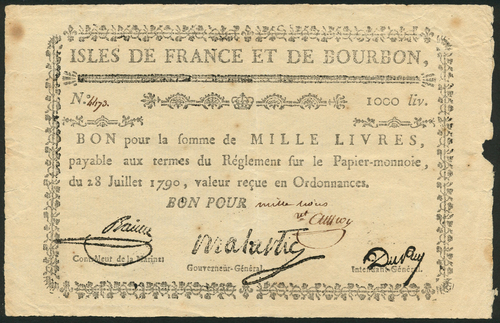 ISLES DE FRANCE ET DE BOURBON,
N.o 4473. 1000 liv.
BON pour la ſomme de MILLE LIVRES,
payable aux termes du Réglement ſur le Papier-monnoie,
du 28 Juillet 1790, valeur reçue en Ordonnances.
BON POUR mille
Malartic
DuPuy
Contrôleur de la Marine.
Gouverneur-Général.
Intendant-Général.